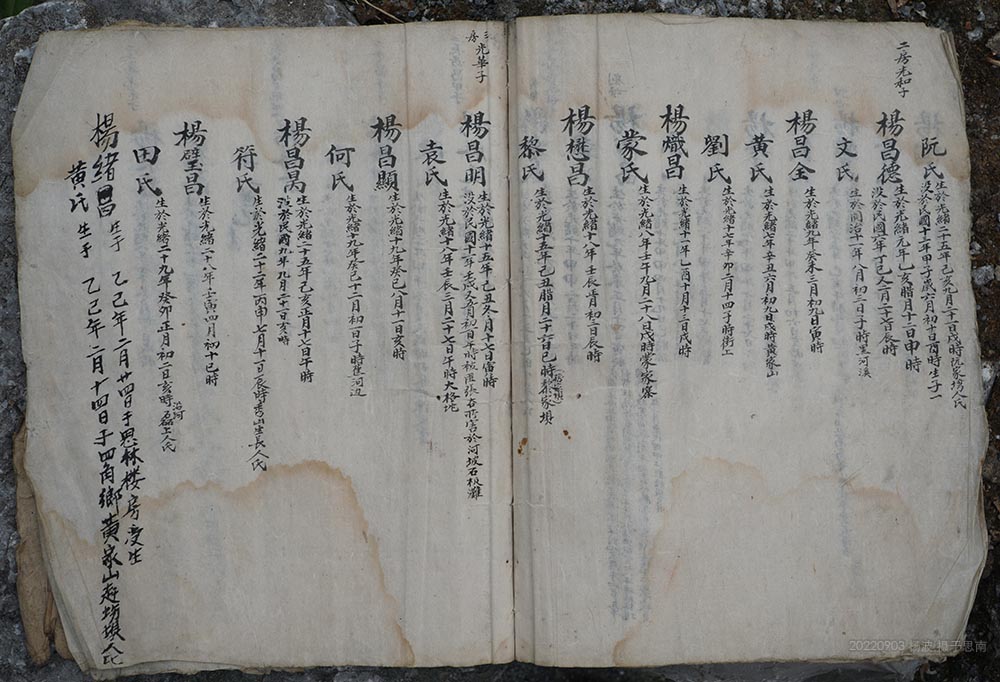 二房光和子
阮氏生於光緒二十五年己亥九月二十二日戌時阮家塆人氏
沒於民國十三年甲子歲六月初十日酉時生子一
楊昌德生於光緒元年乙亥腊月十二日申時
沒於民國六年丁巳八月二十七日辰時
文氏生於同治十一年八月初三日子時
楊昌全生於光緒九年癸未二月初九日寅時
黃氏生於光緒七年辛丑六月初九日戌時黃家山
劉氏生於光緒十七年辛卯二月十四子時街上
楊熾昌生於光緒十一年乙酉十月十三日戌時
蒙氏生於光緒八年壬午九月二十八日戌時蒙家寨
楊懋昌生於光緒十五年己丑腊月二十六日巳時
黎氏生於光緒十八年壬辰正月初二日辰時
三房光華子
楊昌明生於光緒十五年己丑冬月十七日寅時
沒於民國十一年壬戌
袁氏生於光緒十八年壬辰三月二十七日午時大格坨
楊昌顯生於光緒十九年癸巳八月十一日亥時
何氏生於光緒十九年癸巳十二月初一日子時
楊昌昺生於光緒二十五年己亥正月十七日午時
沒於民國九年九月二十二日亥時
符氏生於光緒二十二年丙申七月十一日辰時
楊璧昌生於光緒二十八年壬寅四月初十巳時
田氏生於光緒二十九年癸卯正月初二日亥時沿河
楊緒昌生于乙己年二月廿四日于思林楼房受生
黃氏生于乙己年二月十四日于四角鄉黃家山